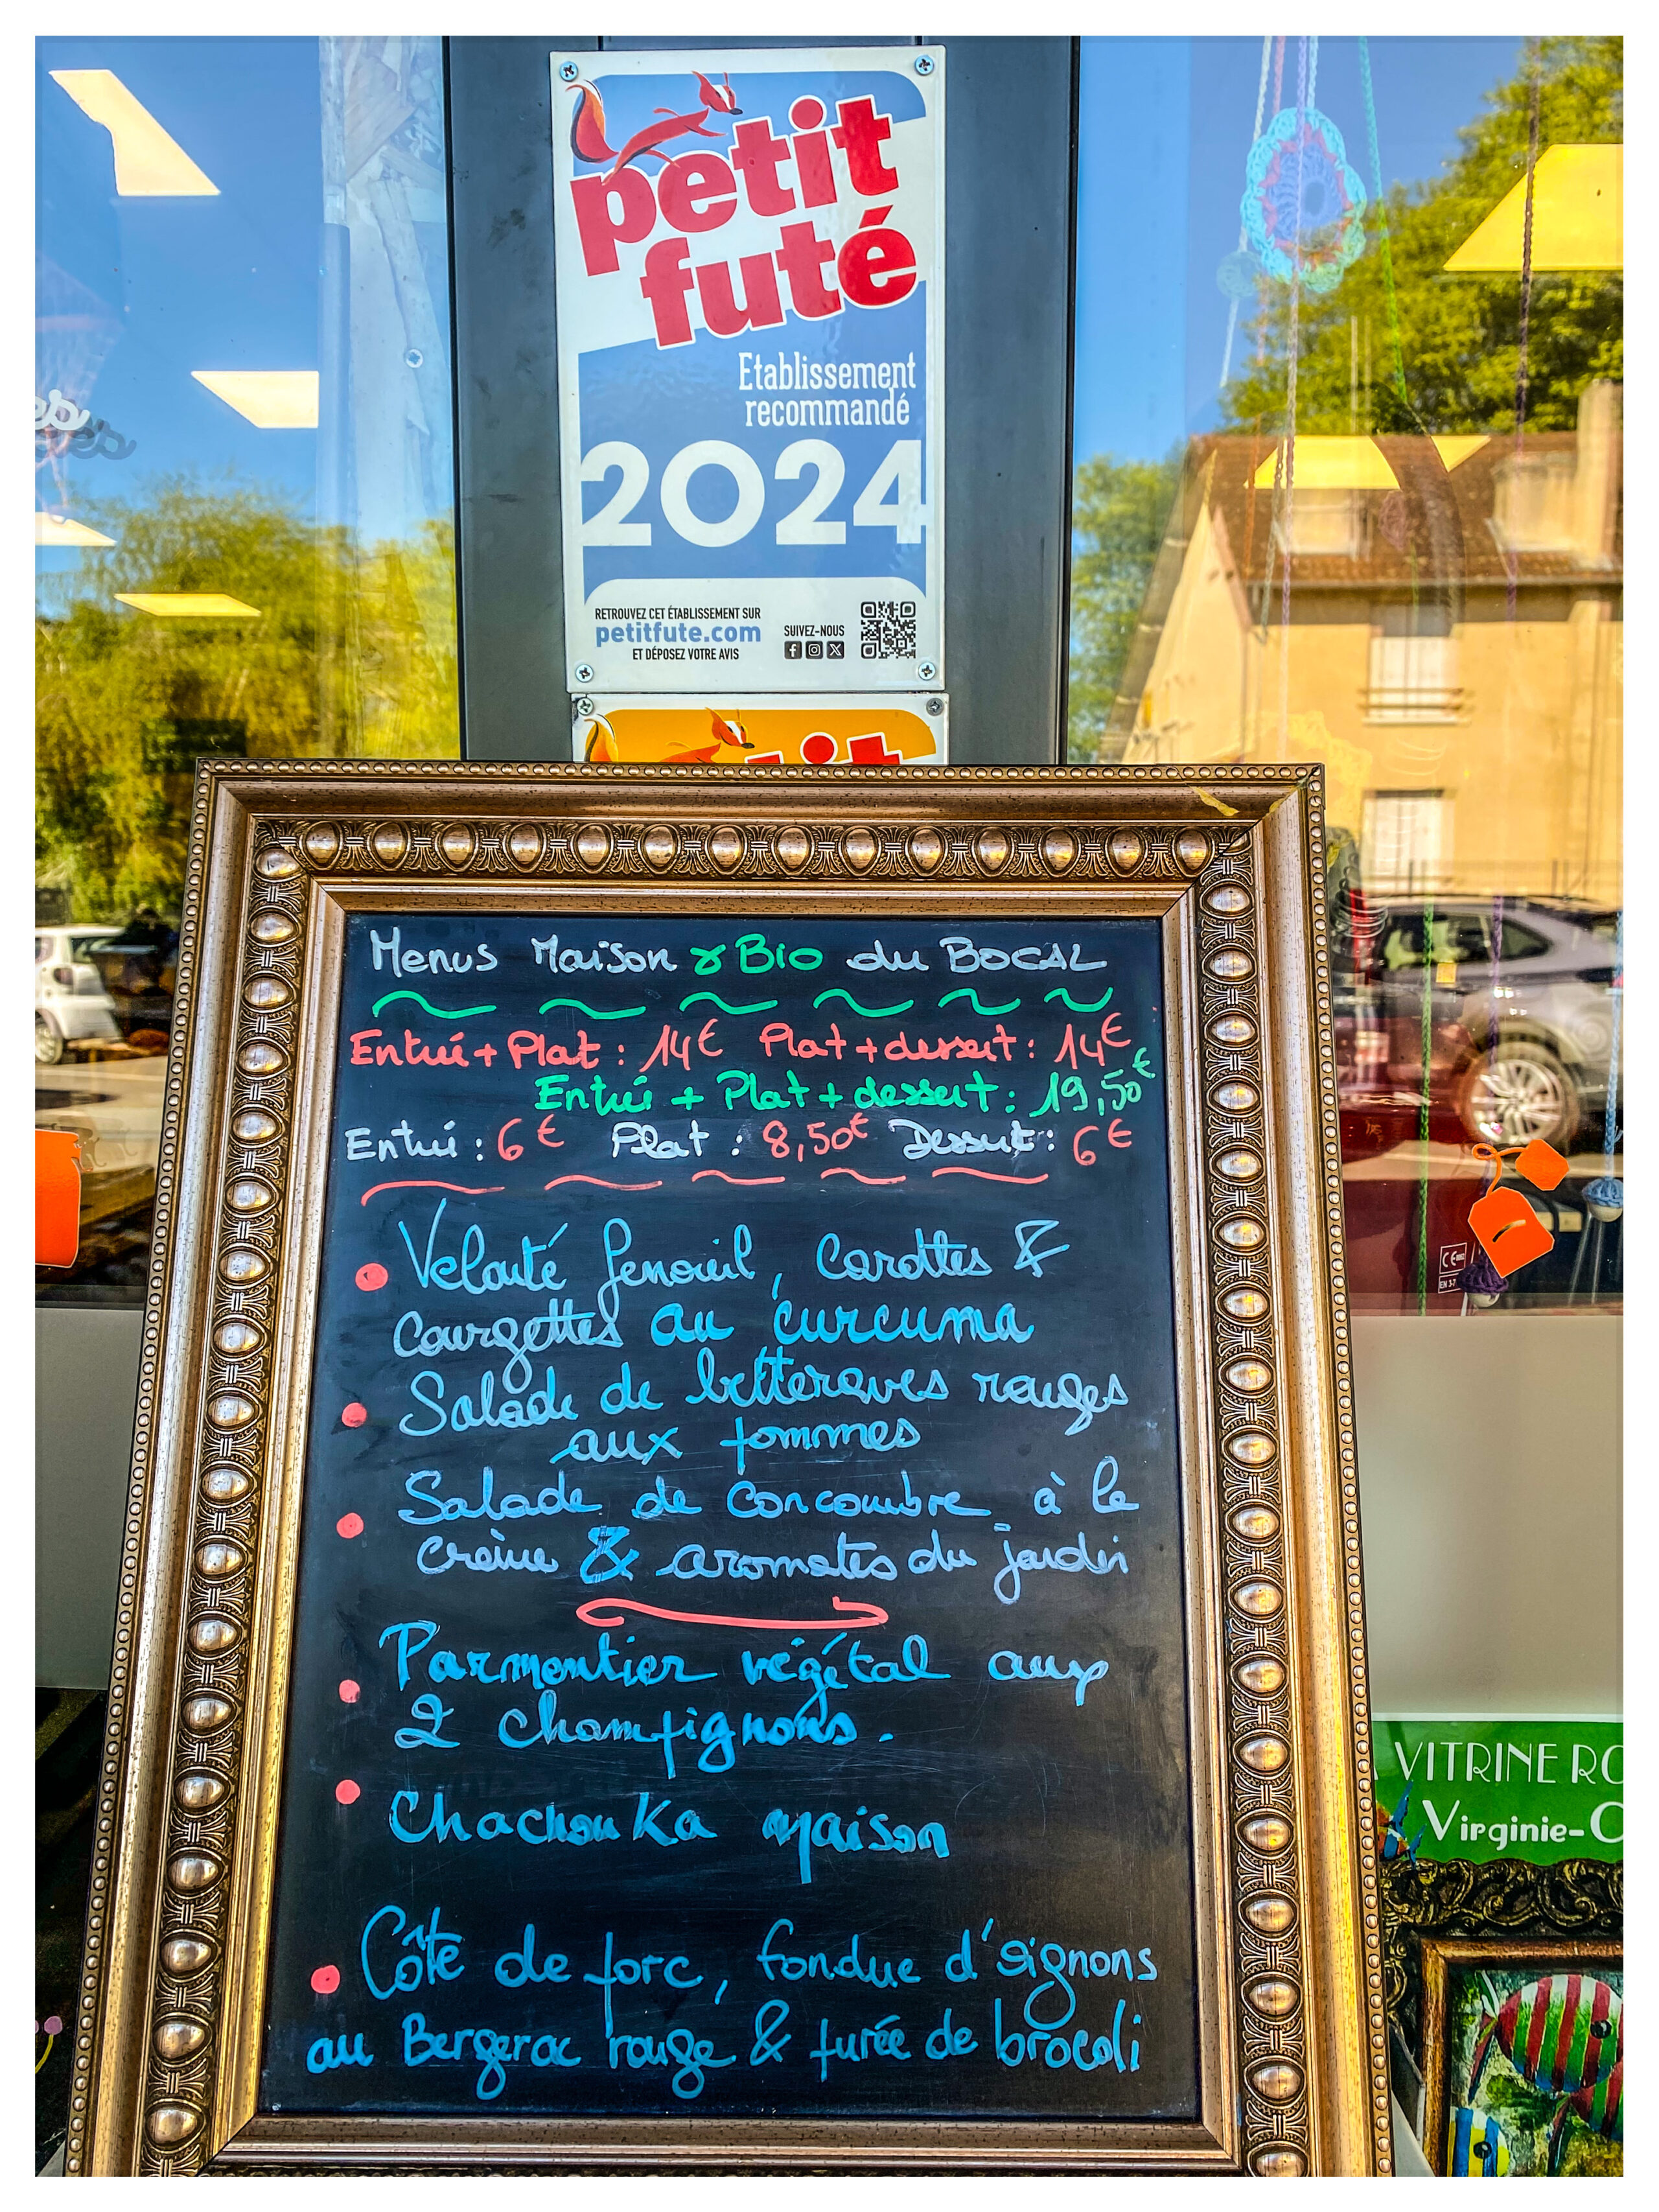 petit
futé
Etablissement
recommandé
2024
RETROUVEZ CET ÉTABLISSEMENT SUR
petitfute.com
ET DÉPOSEZ VOTRE AVIS
SUIVEZ-NOUS
es
it
Menus Maison & Bio du BOCAL
Entrée + Plat : 14€ Plat + dessert : 14€
Entrée + Plat + dessert : 19,50€
Entrée : 6€ Plat : 8,50€ Dessert : 6€
Velouté fenouil, carottes &
courgettes au curcuma
Salade de betteraves rouges
aux pommes
Salade de concombre à la
crème & aromates du jardin
Parmentier végétal aux
2 champignons.
Chachouka maison
Côte de porc, fondue d'oignons
au Bergerac rouge & purée de brocoli
VITRINE RO
Virginie-C